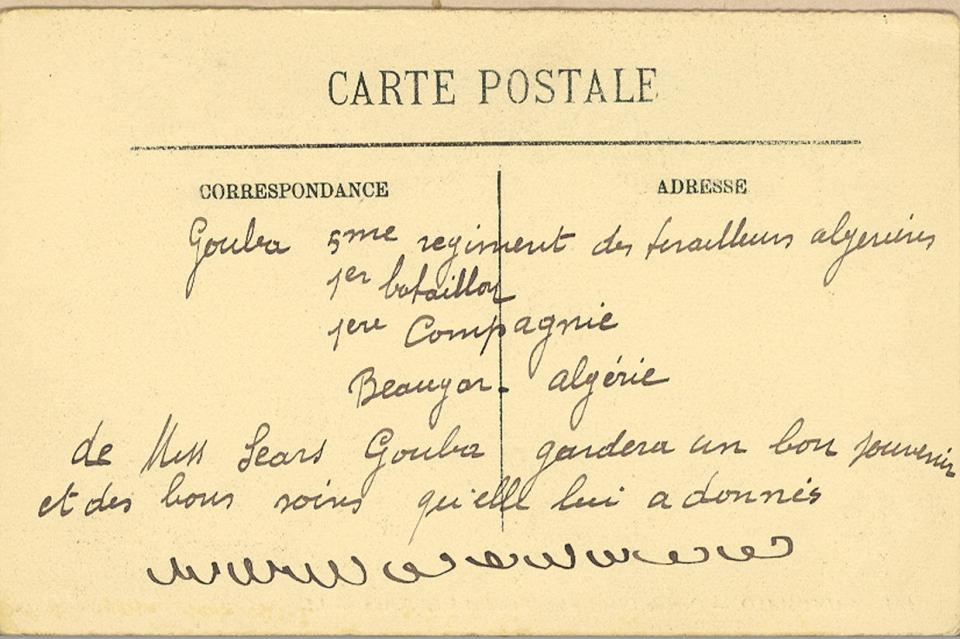 CARTE POSTALE
CORRESPONDANCE ADRESSE
Gouba 5me regiment des tirailleurs algeriens
1er bataillon
1ere Compagnie
algérie
de Miss Sears Gouba gardera un bon souvenir
et des bons soins qu'elle lui a donnés